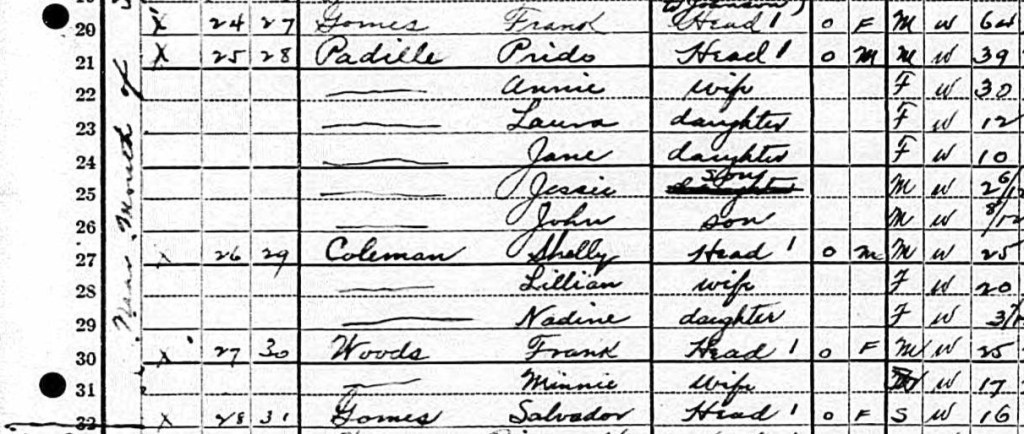 20 X 24 27 Gomes Frank Head 1 O F M W 64
21 X 25 28 Padille Prido Head 1 O M M W 39
22 Annie wife F W 30
23 Laura daughter F W 12
24 Jane daughter F W 10
25 Jessie son M W 2 6/12
26 John son M W 8/12
27 X 26 29 Coleman Shelly Head 1 O M M W 25
28 Lillian wife F W 20
29 Nadine daughter F W 3/
30 X 27 30 Woods Frank Head 1 O F M W 25
31 Minnie wife W 17
32 X 28 31 Gomes Salvador Head 1 O F S W 16